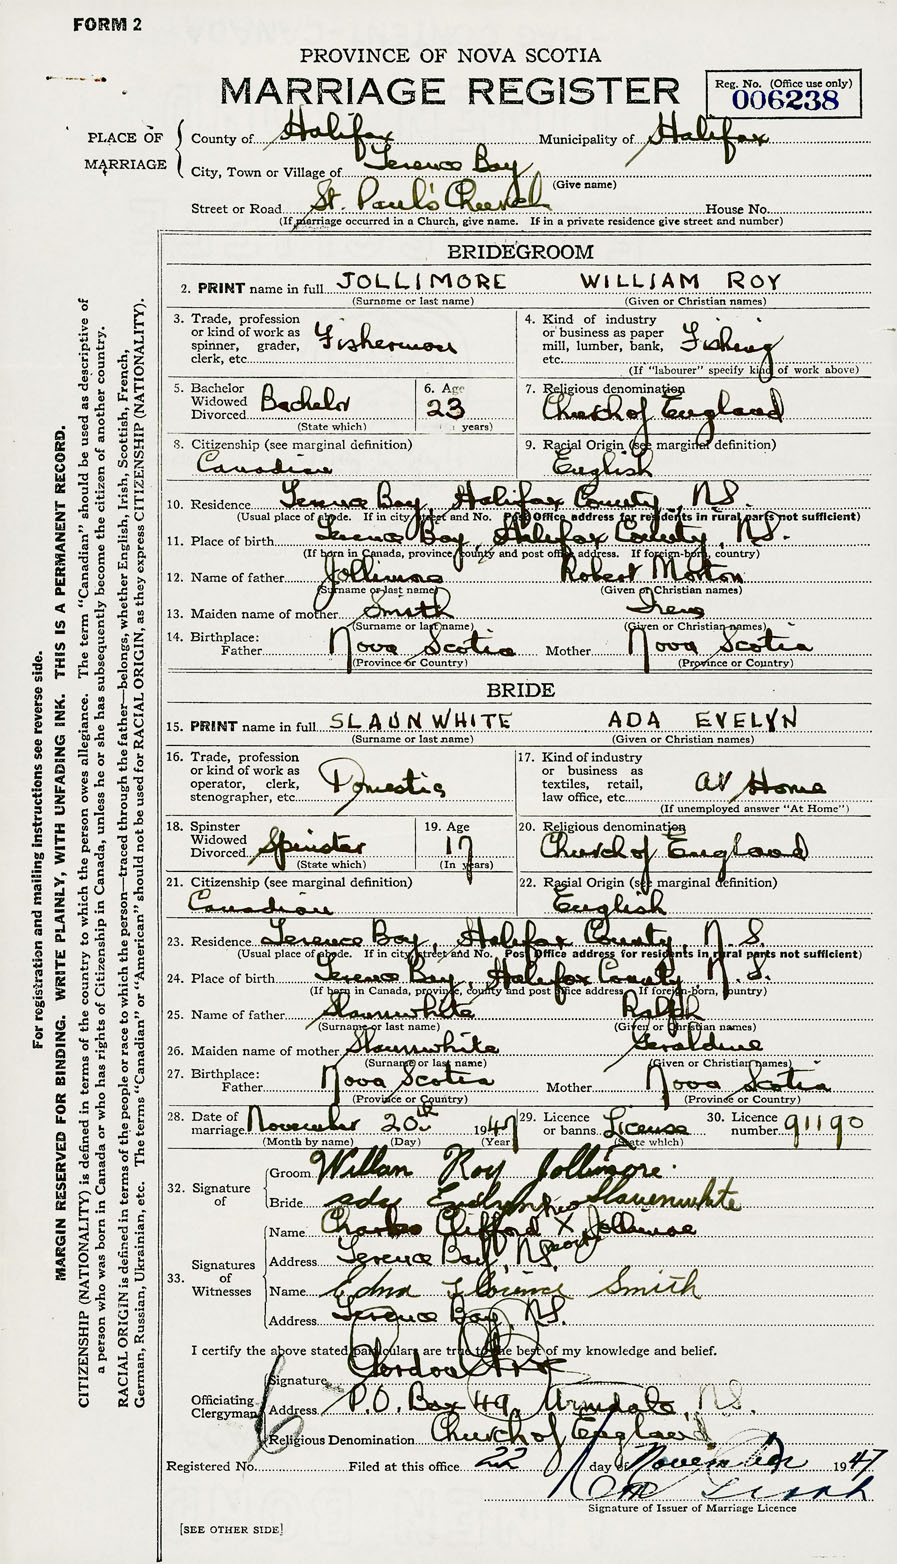 FORM 2
PROVINCE OF NOVA SCOTIA
MARRIAGE REGISTER
Reg. No. (Office use only)
006238
PLACE OF MARRIAGE
County of Halifax Municipality of Halifax
City, Town or Village of Terence Bay
(Give name)
Street or Road St. Paul's Church House No.
(If marriage occurred in a Church, give name. If in a private residence give street and number)
BRIDEGROOM
2. PRINT name in full JOLLIMORE WILLIAM ROY
(Surname or last name) (Given or Christian names)
3. Trade, profession or kind of work as spinner, grader, clerk, etc. Fisherman
4. Kind of industry or business as paper mill, lumber, bank, etc. Fishing
(If "labourer" specify kind of work above)
5. Bachelor Widowed Divorced Bachelor
(State which)
6. Age 23
years)
7. Religious denomination
Church of England
8. Citizenship (see marginal definition)
Canadian
9. Racial Origin (see marginal definition)
English
10. Residence Terence Bay, Halifax County, N.S.
(Usual place of abode. If in city street and No. Post Office address for residents in rural parts not sufficient)
11. Place of birth Terence Bay, Halifax County, N.S.
(If born in Canada, province, county and post office address. If foreign-born, country)
12. Name of father Jollimore Robert Morton
(Surname or last name) (Given or Christian names)
13. Maiden name of mother Smith Irene
(Surname or last name) (Given or Christian names)
14. Birthplace: Father Nova Scotia Mother Nova Scotia
(Province or Country) (Province or Country)
BRIDE
15. PRINT name in full SLAUNWHITE ADA EVELYN
(Surname or last name) (Given or Christian names)
16. Trade, profession or kind of work as operator, clerk, stenographer, etc. Domestic
17. Kind of industry or business as textiles, retail, law office, etc. At Home
(If unemployed answer "At Home")
18. Spinster Widowed Divorced Spinster
(State which)
19. Age 17
(In years)
20. Religious denomination
Church of England
21. Citizenship (see marginal definition)
Canadian
22. Racial Origin (see marginal definition)
English
23. Residence Terence Bay, Halifax County, N.S.
(Usual place of abode. If in city street and No. Post Office address for residents in rural parts not sufficient)
24. Place of birth Terence Bay, Halifax County N.S.
(If born in Canada, province, county and post office address. If foreign-born, country)
25. Name of father Slaunwhite Ralph
(Surname or last name) (Given or Christian names)
26. Maiden name of mother Slaunwhite Geraldine
(Surname or last name) (Given or Christian names)
27. Birthplace: Father Nova Scotia Mother Nova Scotia
(Province or Country) (Province or Country)
28. Date of marriage November 20th 1947
(Month by name) (Day) (Year)
29. Licence or banns License
(State which)
30. Licence number 91190
32. Signature of
Groom Willam Roy Jollimore.
Bride Slaunwhite
33. Signatures of Witnesses
Name Charles Clifford X Jollimore
Address Terence Bay, N.S.
Name Edna Florence Smith
Address Terence Bay, N.S.
I certify the above stated particulars are true to the best of my knowledge and belief.
Officiating Clergyman
Signature
Address P.O. Box 49, Armdale, N.S.
Religious Denomination Church of England
Registered No. Filed at this office 22 day of November 1947
Signature of Issuer of Marriage Licence
[SEE OTHER SIDE]
For registration and mailing instructions see reverse side.
MARGIN RESERVED FOR BINDING. WRITE PLAINLY, WITH UNFADING INK. THIS IS A PERMANENT RECORD.
CITIZENSHIP (NATIONALITY) is defined in terms of the country to which the person owes allegiance. The term "Canadian" should be used as descriptive of
a person who was born in Canada or who has rights of Citizenship in Canada, unless he or she has subsequently become the citizen of another country.
RACIAL ORIGIN is defined in terms of the people or race to which the person—traced through the father—belongs, whether English, Irish, Scottish, French,
German, Russian, Ukrainian, etc. The terms "Canadian" or "American" should not be used for RACIAL ORIGIN, as they express CITIZENSHIP (NATIONALITY).